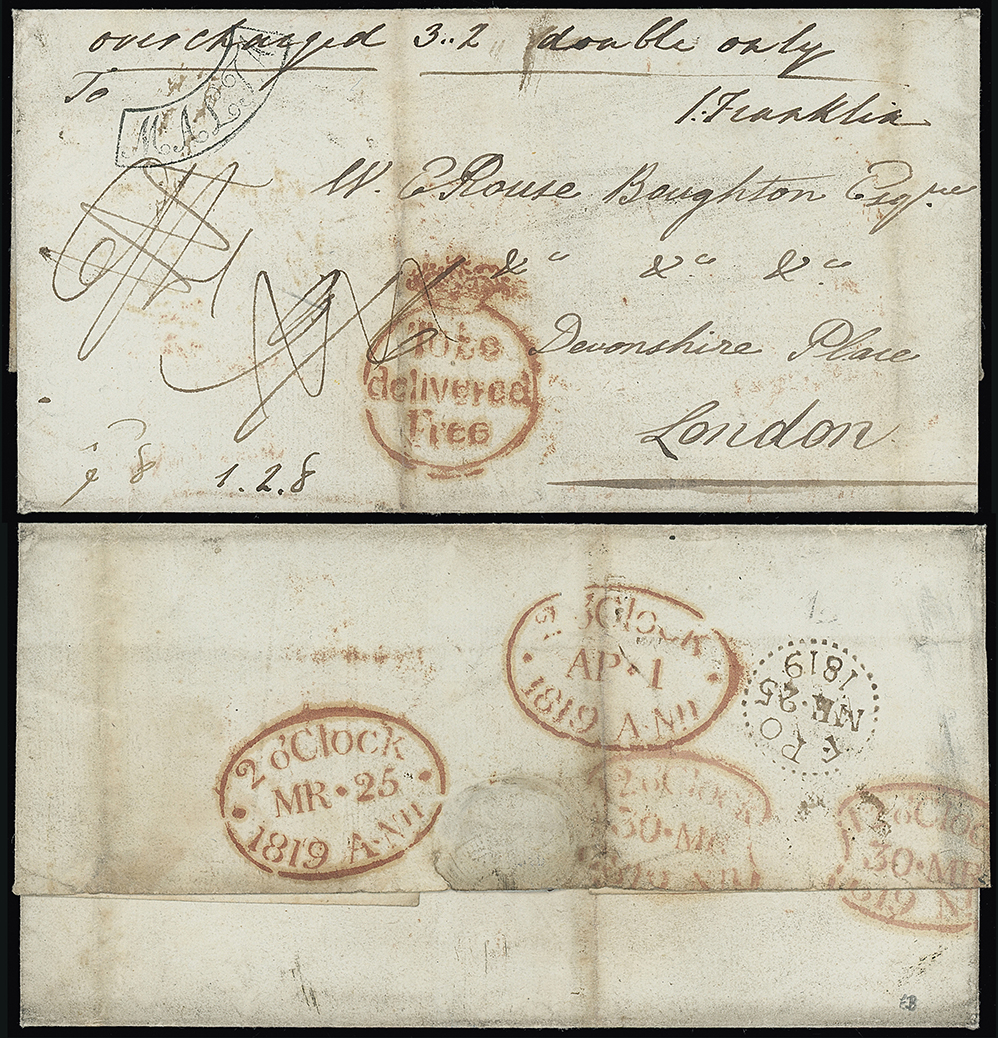 overcharged 3..2 double only
MALTA
To
J. Franklin
W. E. Rouse Boughton Esqre
&c &c &c
To be
delivered
Free
Devonshire Place
London
8 1.2.8
o'Clock
AP·1
1819 A·NN
1819
MR·25
FPO
2 o'Clock
MR·25
1819 A·NN
2 o'Clock
30·MR
1819 NN
o'Cloc
30·MR
1819 N
EB